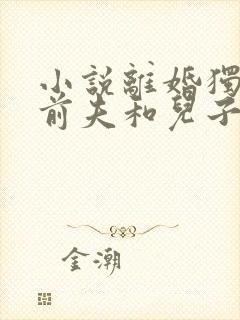 小說離婚獨
前夫和兒子
金潮